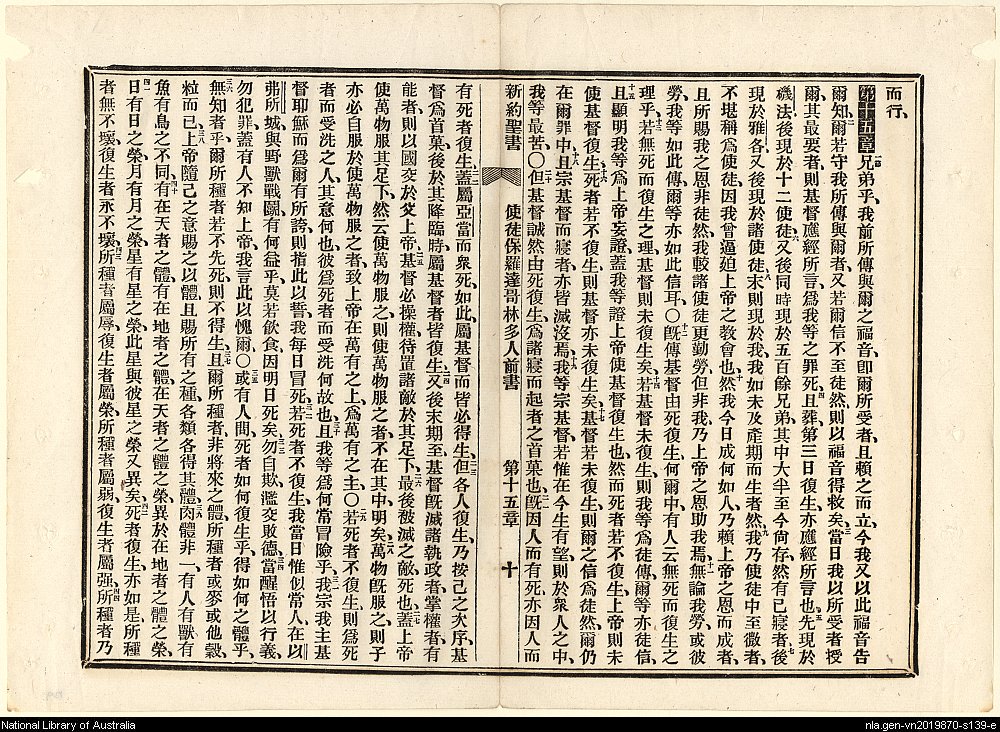 而行、
第十五章兄弟乎、我前所傳與爾之福音、卽爾所受者、且賴之而立、今我又以此福音告
爾知、爾若守我所傳與爾者、又若爾信不至徒然、則以福音得救矣、當日我以所受者授
爾、其最要者、則基督應經所言、爲我等之罪死、且葬、第三日復生、亦應經所言也、先現於
磯法、後現於十二使徒、又後同時現於五百餘兄弟、其中大半至今尚存、然有已寢者、後
現於雅各、又後現於諸使徒、末則現於我、我如未及產期而生者然、我乃使徒中至微者、
不堪稱爲使徒、因我曾逼迫上帝之教會也、然我今日成何如人、乃賴上帝之恩而成者、
且所賜我之恩非徒然、我較諸使徒更勤勞、但非我、乃上帝之恩助我焉、無論我勞、或彼
勞、我等如此傳、爾等亦如此信耳、〇旣傳基督由死復生、何爾中有人云無死而復生之
理乎、若無死而復生之理、基督則未復生矣、若基督未復生、則我等爲徒傳、爾等亦徒信、
且顯明我等爲上帝妄證、蓋我等證上帝使基督復生也、然而死者若不復生、上帝則未
使基督復生、死者若不復生、則基督亦未復生矣、基督若未復生、則爾之信爲徒然、爾仍
在爾罪中、且宗基督而寢者、亦皆滅沒焉、我等宗基督、若惟在今生有望、則於衆人之中、
我等最苦、〇但基督誠然由死復生、爲諸寢而起者之首菓也、旣因人而有死、亦因人而
新約聖書 使徒保羅達哥林多人前書 第十五章 十
有死者復生、蓋屬亞當而衆死、如此屬基督而皆必得生、但各人復生、乃按己之次序、基
督爲首菓、後於其降臨時、屬基督者皆復生、又後末期至、基督旣滅諸執政者、掌權者、有
能者、則以國交於父上帝、基督必操權、待置諸敵於其足下、最後被滅之敵、死也、蓋上帝
使萬物服其足下、然云使萬物服之、則使萬物服之者、不在其中明矣、萬物旣服之、則子
亦必自服於使萬物服之者、致上帝在萬有之上、爲萬有之主、〇若死者不復生、則爲死
者而受洗之人、其意何也、彼爲死者而受洗何故也、且我等爲何常冒險乎、我宗我主基
督耶穌而爲爾有所誇、則指此以誓、我每日冒死、若死者不復生、我當日惟似常人、在以
弗所城與野獸戰鬭、有何益乎、莫若飲食、因明日死矣、勿自欺、濫交敗德、當醒悟以行義、
勿犯罪、蓋有人不知上帝、我言此以愧爾、〇或有人問、死者如何復生乎、得如何之體乎、
無知者乎、爾所種者、若不先死、則不得生、且爾所種者、非將來之體、所種者或麥或他穀、
粒而已、上帝隨己之意賜之以體、且賜所有之種、各類各得其體、肉體非一、有人有獸有
魚有鳥之不同、有在天者之體、有在地者之體、在天者之體之榮、異於在地者之體之榮、
日有日之榮、月有月之榮、星有星之榮、此星與彼星之榮又異矣、死者復生亦如是、所種
者無不壞、復生者永不壞、所種者屬辱、復生者屬榮、所種者屬弱、復生者屬强、所種者乃
National Library of Australia
nla.gen-vn2019870-s139-e